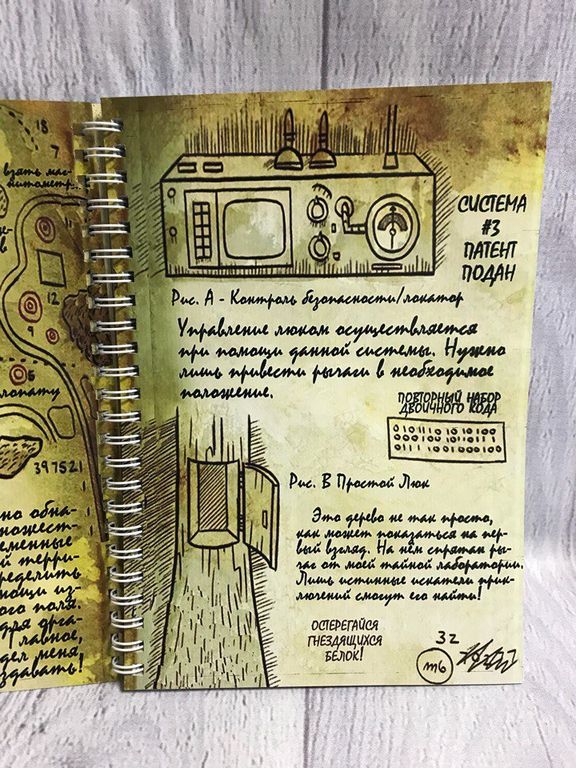 18
7
взять маг-
нитометр...
11
12
9
6
лопату
397521
но обна-
множест-
еменные
й терри-
ределить
мощи из-
ого поля.
главное,
дел меня,
здавать!
СИСТЕМА
#3
ПАТЕНТ
ПОДАН
Рис. А - Контроль безопасности/локатор
Управление люком осуществляется
при помощи данной системы. Нужно
лишь привести рычаги в необходимое
положение.
ПОВТОРНЫЙ НАБОР
ДВОИЧНОГО КОДА
Рис. В Простой Люк
Это дерево не так просто,
как может показаться на пер-
вый взгляд. На нем спрятан ры-
чаг от моей тайной лаборатории.
Лишь истинные искатели прик-
лючений смогут его найти!
ОСТЕРЕГАЙСЯ
ГНЕЗДЯЩИХСЯ
БЕЛОК!
32